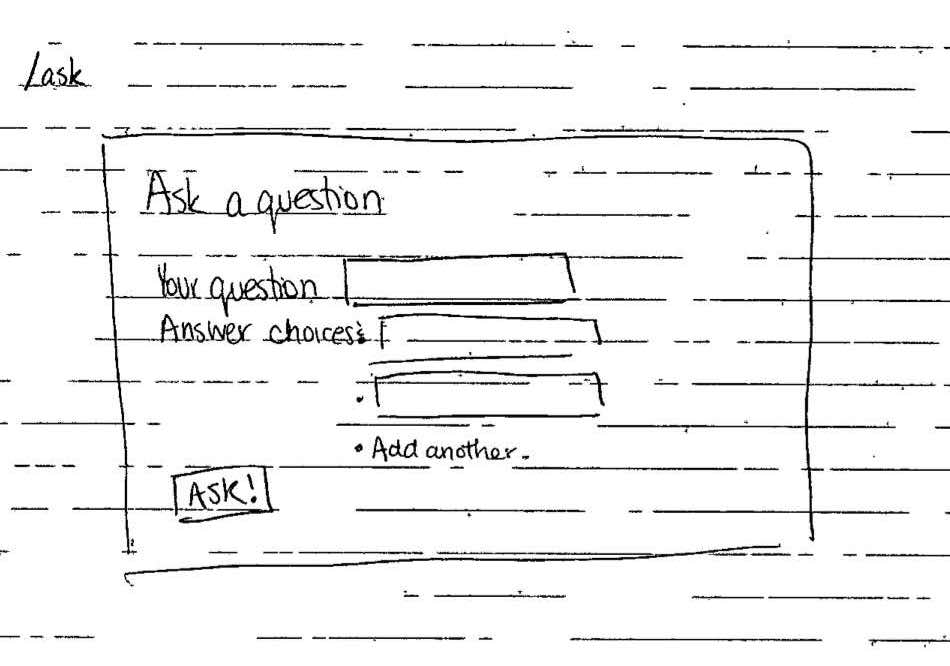 /ask
Ask a question
Your question
Answer choices:
• Add another.
ASK!